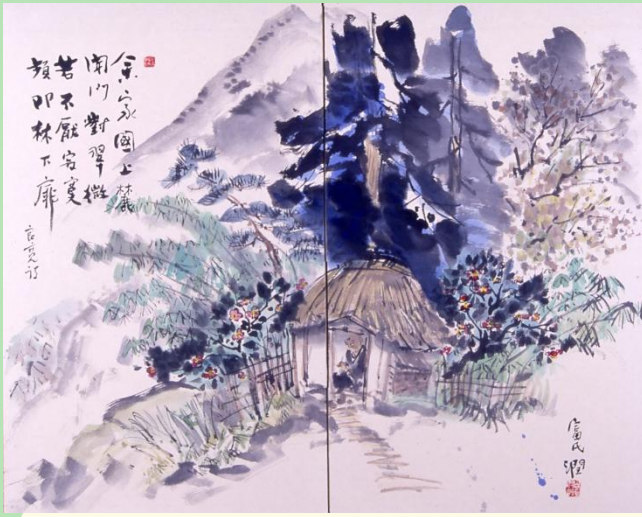 余家國上麓
開門對翠微
若不厭寂寞
頻叩林下扉
良寛詩
潤